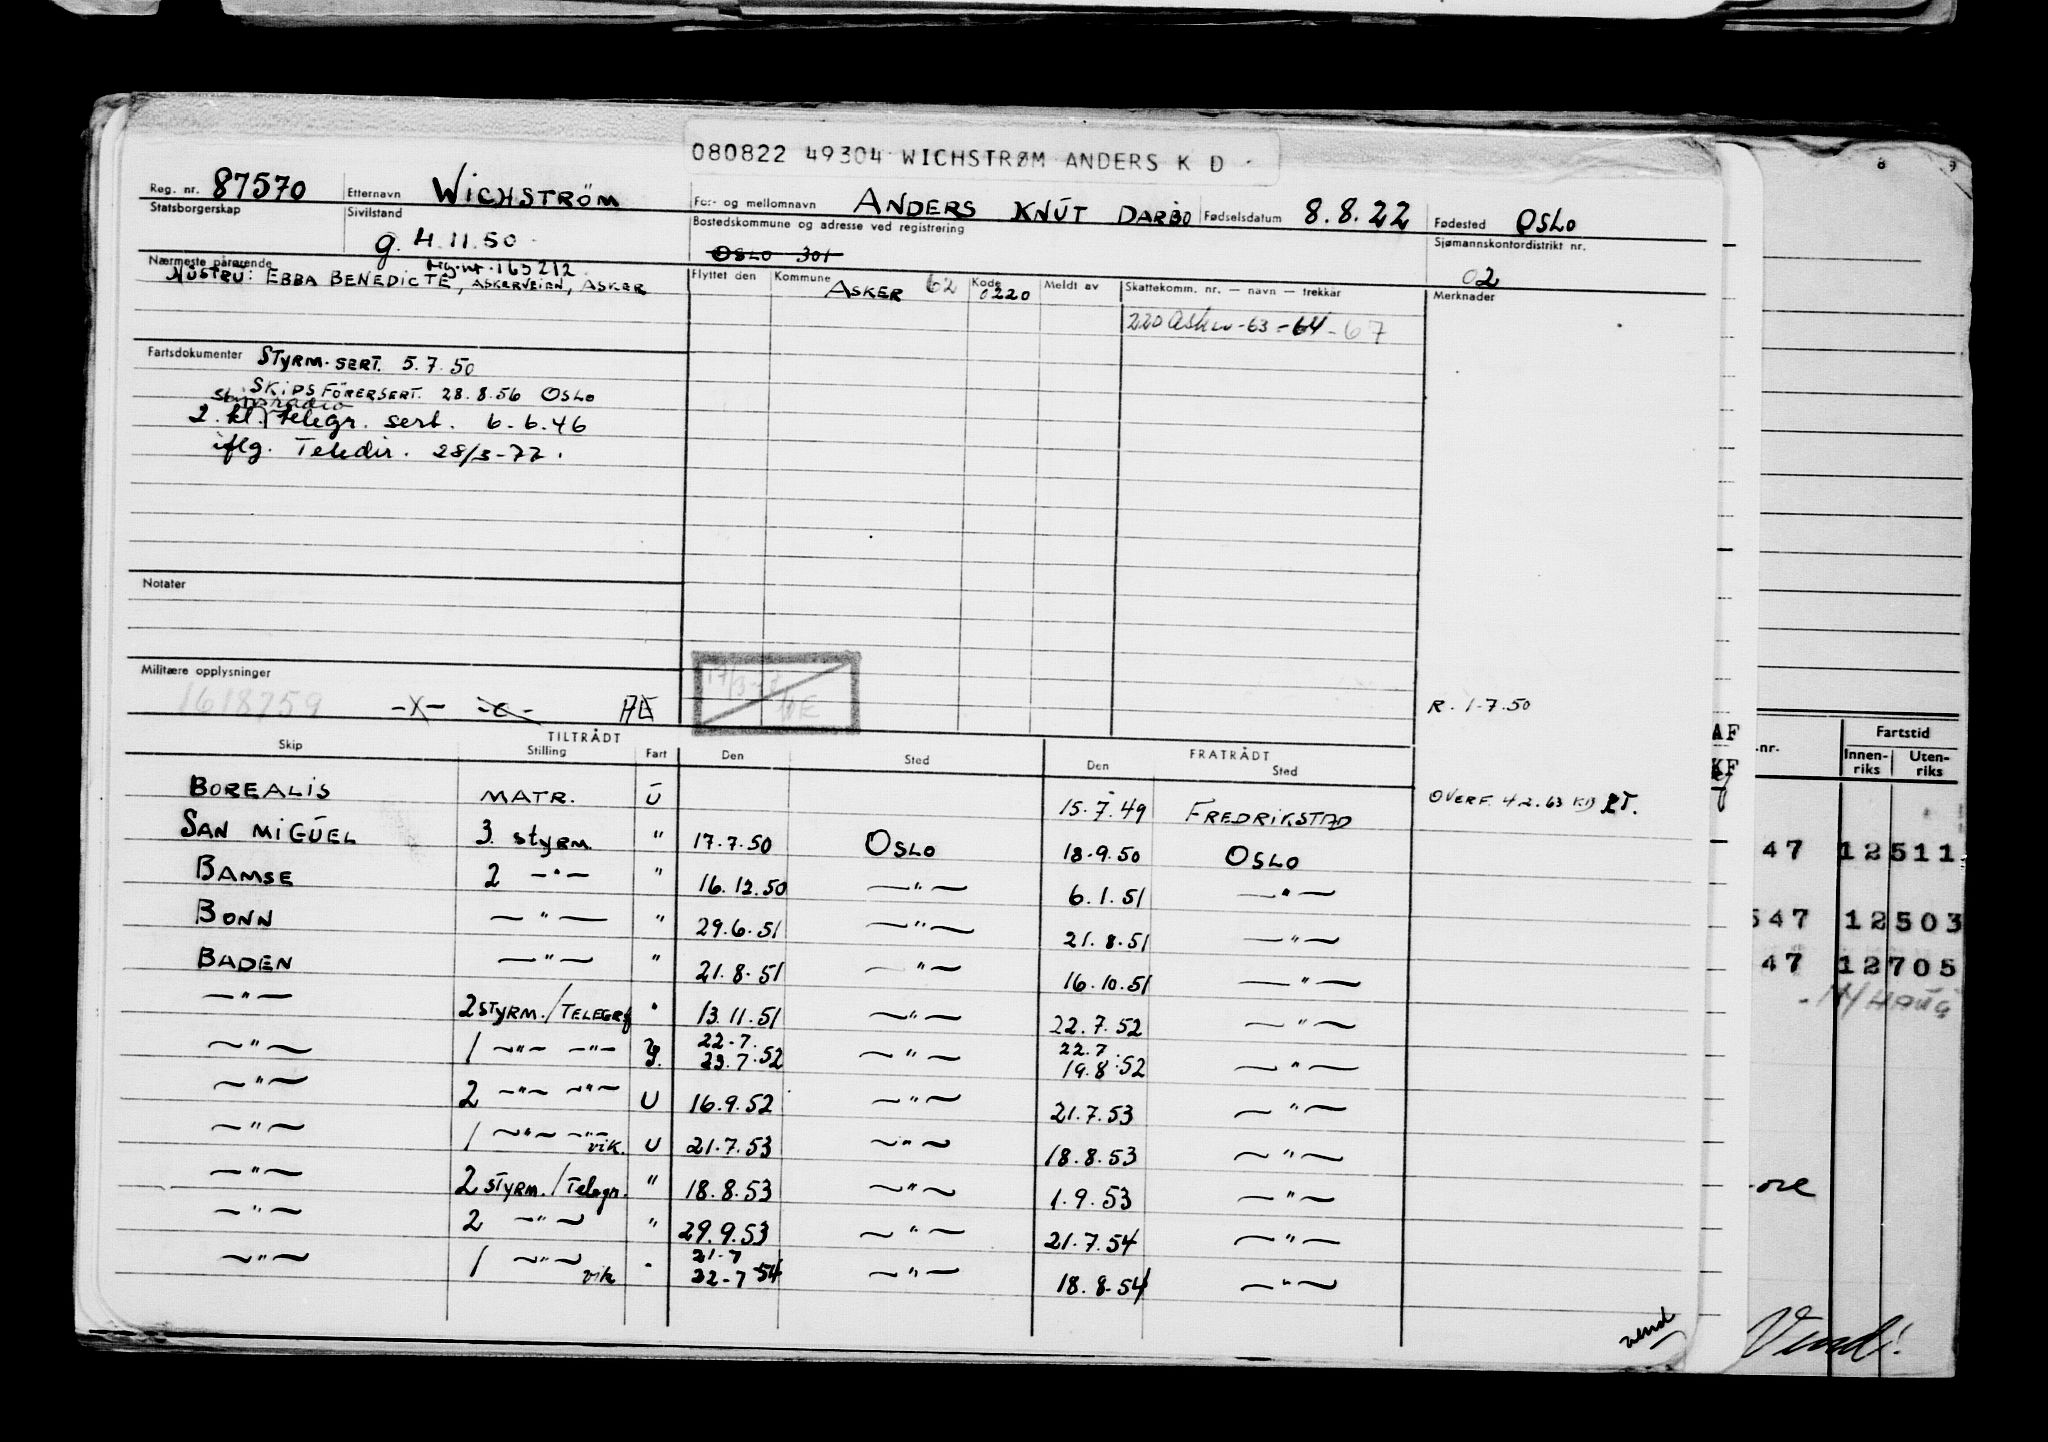 080822 49304 WICHSTRØM ANDERS K D
Reg. nr. 87570 Etternavn WICHSTRÖM For- og mellomnavn ANDERS KNUT DARBO Fødselsdatum 8.8.22 Fødested OSLO
Statsborgerskap Sivilstand g. 4.11.50 Bostedskommune og adresse ved registrering OSLO 301 Sjømannskontordistrikt nr. 02
Nærmeste pårørende Reg.nr. 163212
HUSTRU: EBBA BENEDICTE, ASKERVEIEN, ASKER
Flyttet den Kommune Kode Meldt av Skattekomm. nr. — navn — trekkår Merknader
ASKER 62 0220
220 Asker -63 -64 -67
Fartsdokumenter STYRM. SERT. 5.7.50
SKIPSFÖRERSERT. 28.8.56 OSLO
skipsradio
2. kl. telegr. sert. 6.6.46
iflg. Teledir. 28/3-77.
Notater
Militære opplysninger
1618759 -X- -o-
R. 1.7.50
TILTRÅDT FRATRÅDT
Skip Stilling Fart Den Sted Den Sted
BOREALIS MATR. U 15.7.49 FREDRIKSTAD OVERF. 4.2.63
SAN MIGUEL 3. styrm. " 17.7.50 OSLO 18.9.50 OSLO
BAMSE 2 —"— " 16.12.50 —"— 6.1.51 —"—
BONN —"— " 29.6.51 —"— 21.8.51 —"—
BADEN —"— " 21.8.51 —"— 16.10.51 —"—
—"— 2 STYRM./TELEGRF " 13.11.51 —"— 22.7.52 —"—
—"— 1 —"— —"— 22.7. 23.7.52 —"— 22.7 19.8.52 —"—
—"— 2 —"— —"— U 16.9.52 —"— 21.7.53 —"—
—"— 1 —"— —"— vik. U 21.7.53 —"— 18.8.53 —"—
—"— 2 STYRM./Telegr. " 18.8.53 —"— 1.9.53 —"—
—"— 2 —"— " 29.9.53 —"— 21.7.54 —"—
—"— 1 —"— vik " 21.7 22.7.54 —"— 18.8.54 —"—
vend
8 9
AF
KF
.nr. Fartstid
Innenriks Utenriks
47 12511
547 12503
47 12705
Vend!